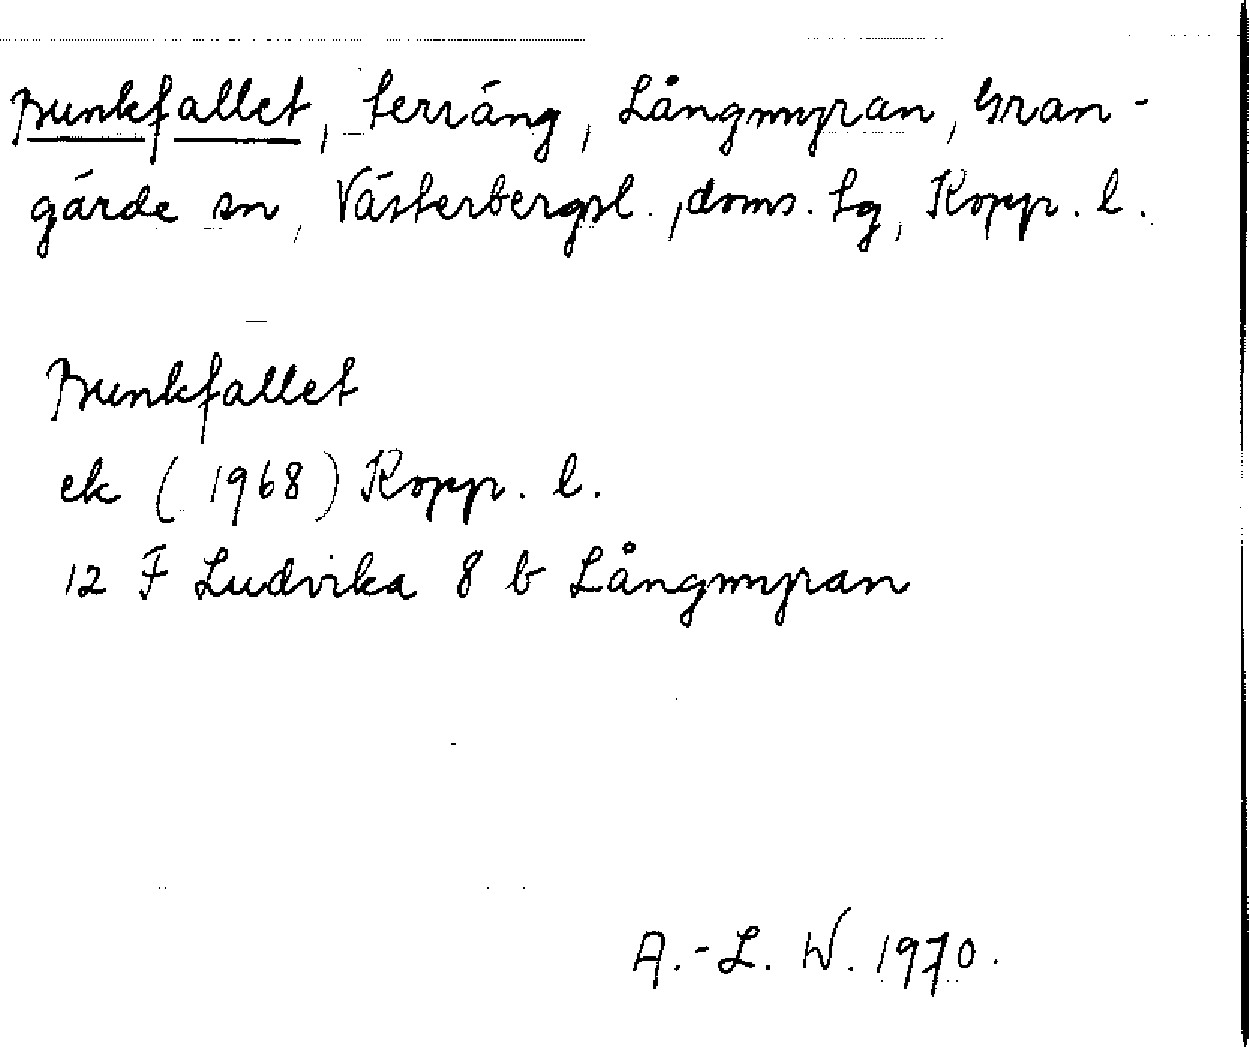 Bunkfallet, terräng, Långmyran, Gran-
gärde sn, Västerbergsl., doms. tg, Kopp. l.
Bunkfallet
ek (1968) Kopp. l.
12 F Ludvika 8 b Långmyran
A.-L. W. 1970.